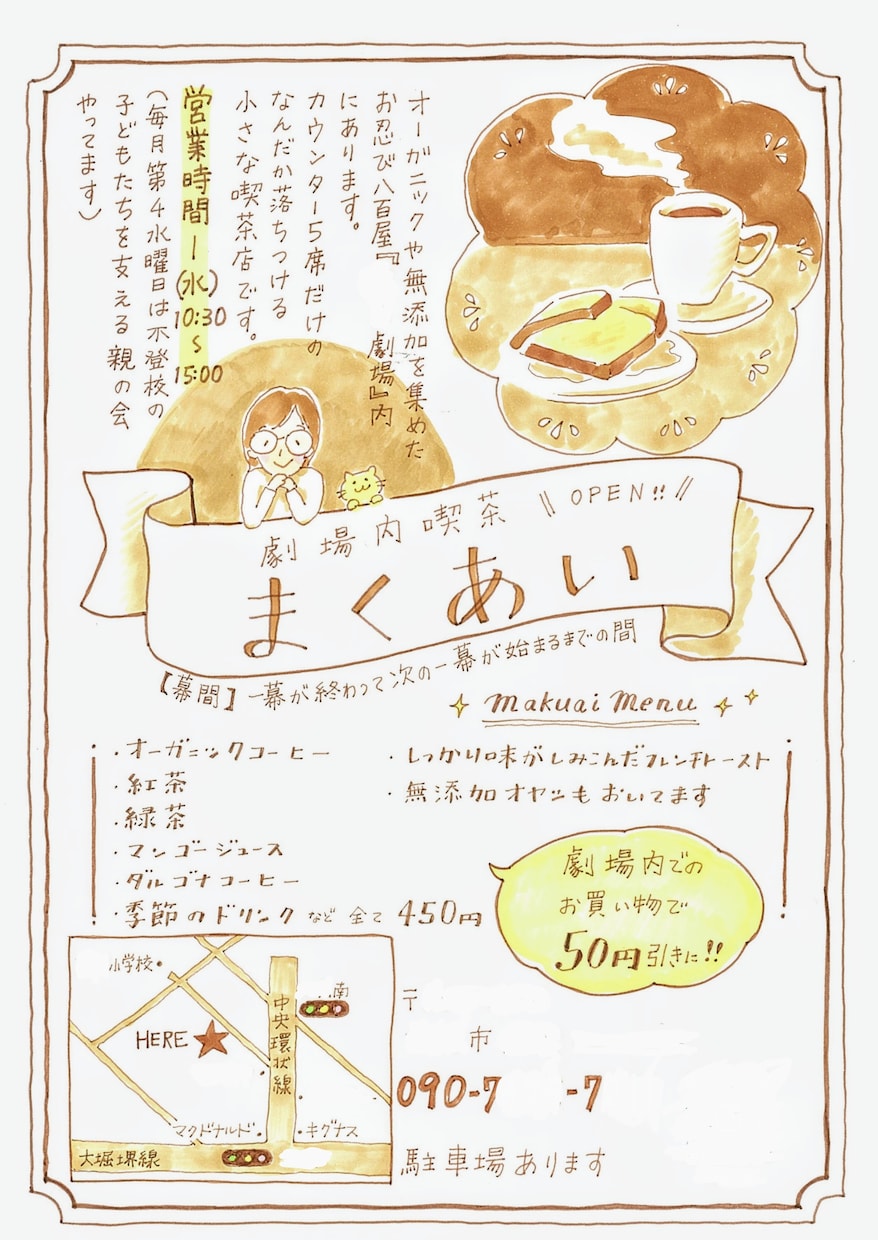 オーガニックや無添加を集めた
お忍び八百屋『 劇場』内
にあります。
カウンター5席だけの
なんだか落ちつける
小さな喫茶店です。
営業時間ー(水)
10:30
~
15:00
(毎月第4水曜日は不登校の
子どもたちを支える親の会
やってます)
劇場内喫茶 \\ OPEN!! //
まくあい
【幕間】一幕が終わって次の一幕が始まるまでの間
makuai Menu
・オーガニックコーヒー
・紅茶
・緑茶
・マンゴージュース
・ダルゴナコーヒー
・季節のドリンク など 全て 450円
・しっかり味がしみこんだフレンチトースト
・無添加オヤツもおいてます
劇場内での
お買い物で
50円引きに!!
小学校
南
中央環状線
HERE
マクドナルド
キグナス
大堀堺線
〒
市
090-7 -7
駐車場あります